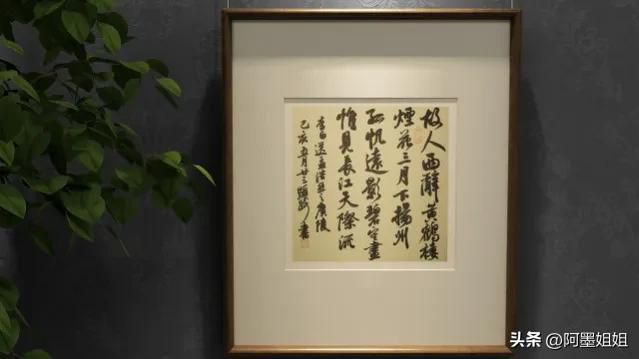 故人西辭黃鶴樓
煙花三月下揚州
孤帆遠影碧空盡
惟見長江天際流
李白送孟浩然之廣陵
己亥五月廿三
書
头条 @阿墨姐姐